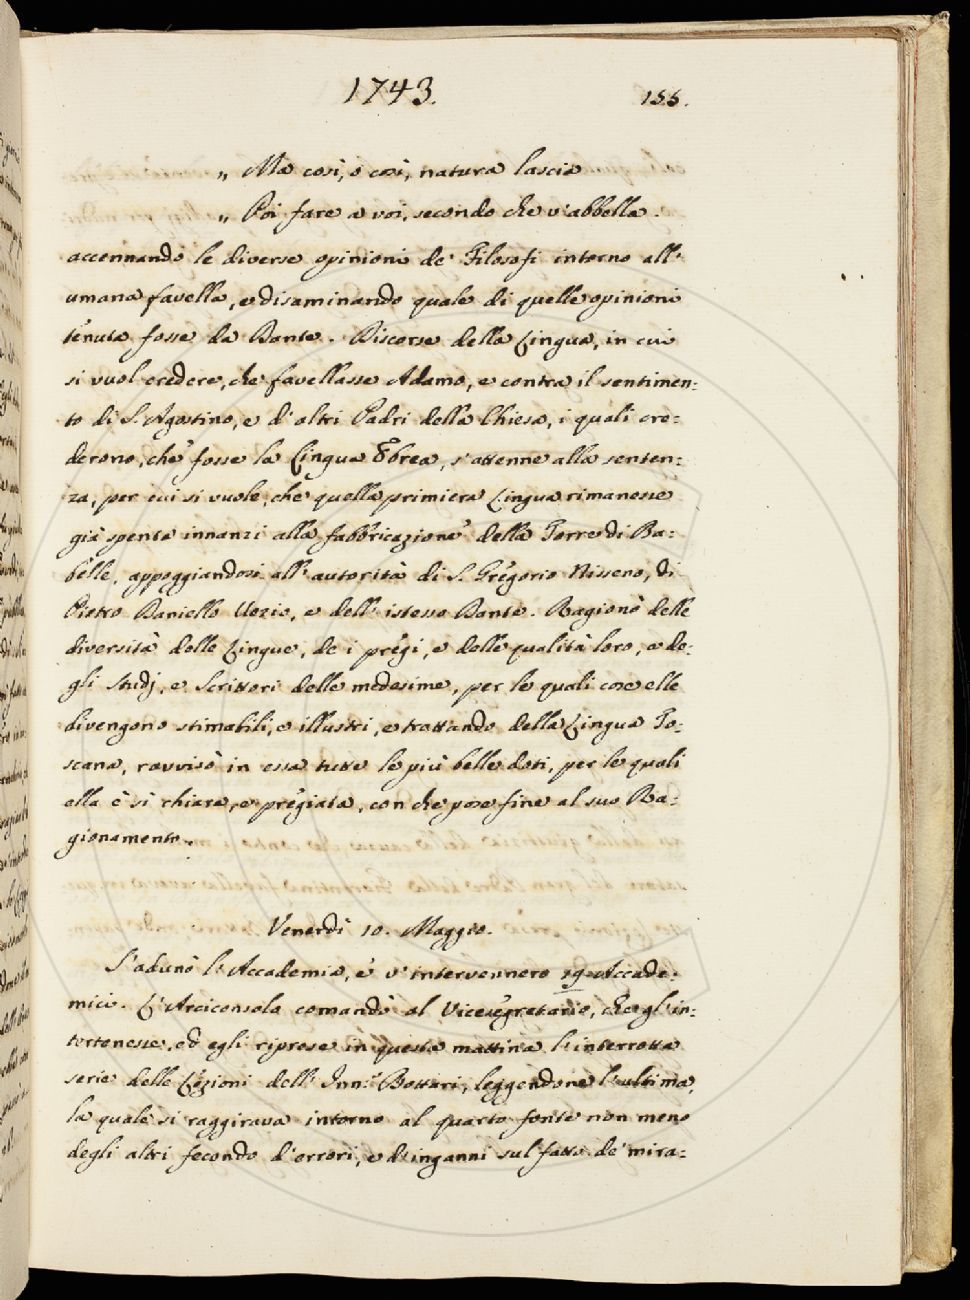 1743. 155.
„ Ma così, o così, natura lascia
„ Poi fare a voi, secondo che v'abbella.
accennando le diverse opinioni de' Filosofi intorno all'
umana favella, e disaminando quale di quelle opinioni
tenuta fosse da Dante. Discorse della Lingua, in cui
si vuol credere, che favellasse Adamo, e contra il sentimen=
to di S. Agostino, e d'altri Padri della Chiesa, i quali cre=
derono, che fosse la Lingua Ebrea, s'attenne alla senten=
za, per cui si vuole, che quella primiera Lingua rimanesse
già spenta innanzi alla fabbricazione della Torre di Ba=
belle, appoggiandosi all'autorità di S. Gregorio Nisseno, di
Pietro Daniello Uezio, e dell'istesso Dante. Ragionò delle
diversità delle Lingue, de i pregi, e delle qualità loro, e de=
gli studj, e Scrittori delle medesime, per le quali cose elle
divengono stimabili, e illustri, e trattando della Lingua To=
scana, ravvisò in essa tutte le più belle doti, per le quali
ella è sì chiara, e pregiata, con che pose fine al suo Ra=
gionamento.
Venerdì 10. Maggio.
S'adunò l'Accademia, e v'intervennero 19. Accade=
mici. L'Arciconsolo comandò al Vicesegretario, che gl'in=
tertenesse, ed egli riprese in questa mattina l'interrotta
serie delle Lezioni dell'Inn.º Bottari, leggendone l'ultima,
la quale si raggirava intorno al quarto fonte non meno
degli altri fecondo d'errori, e d'inganni sul fatto de' mira=